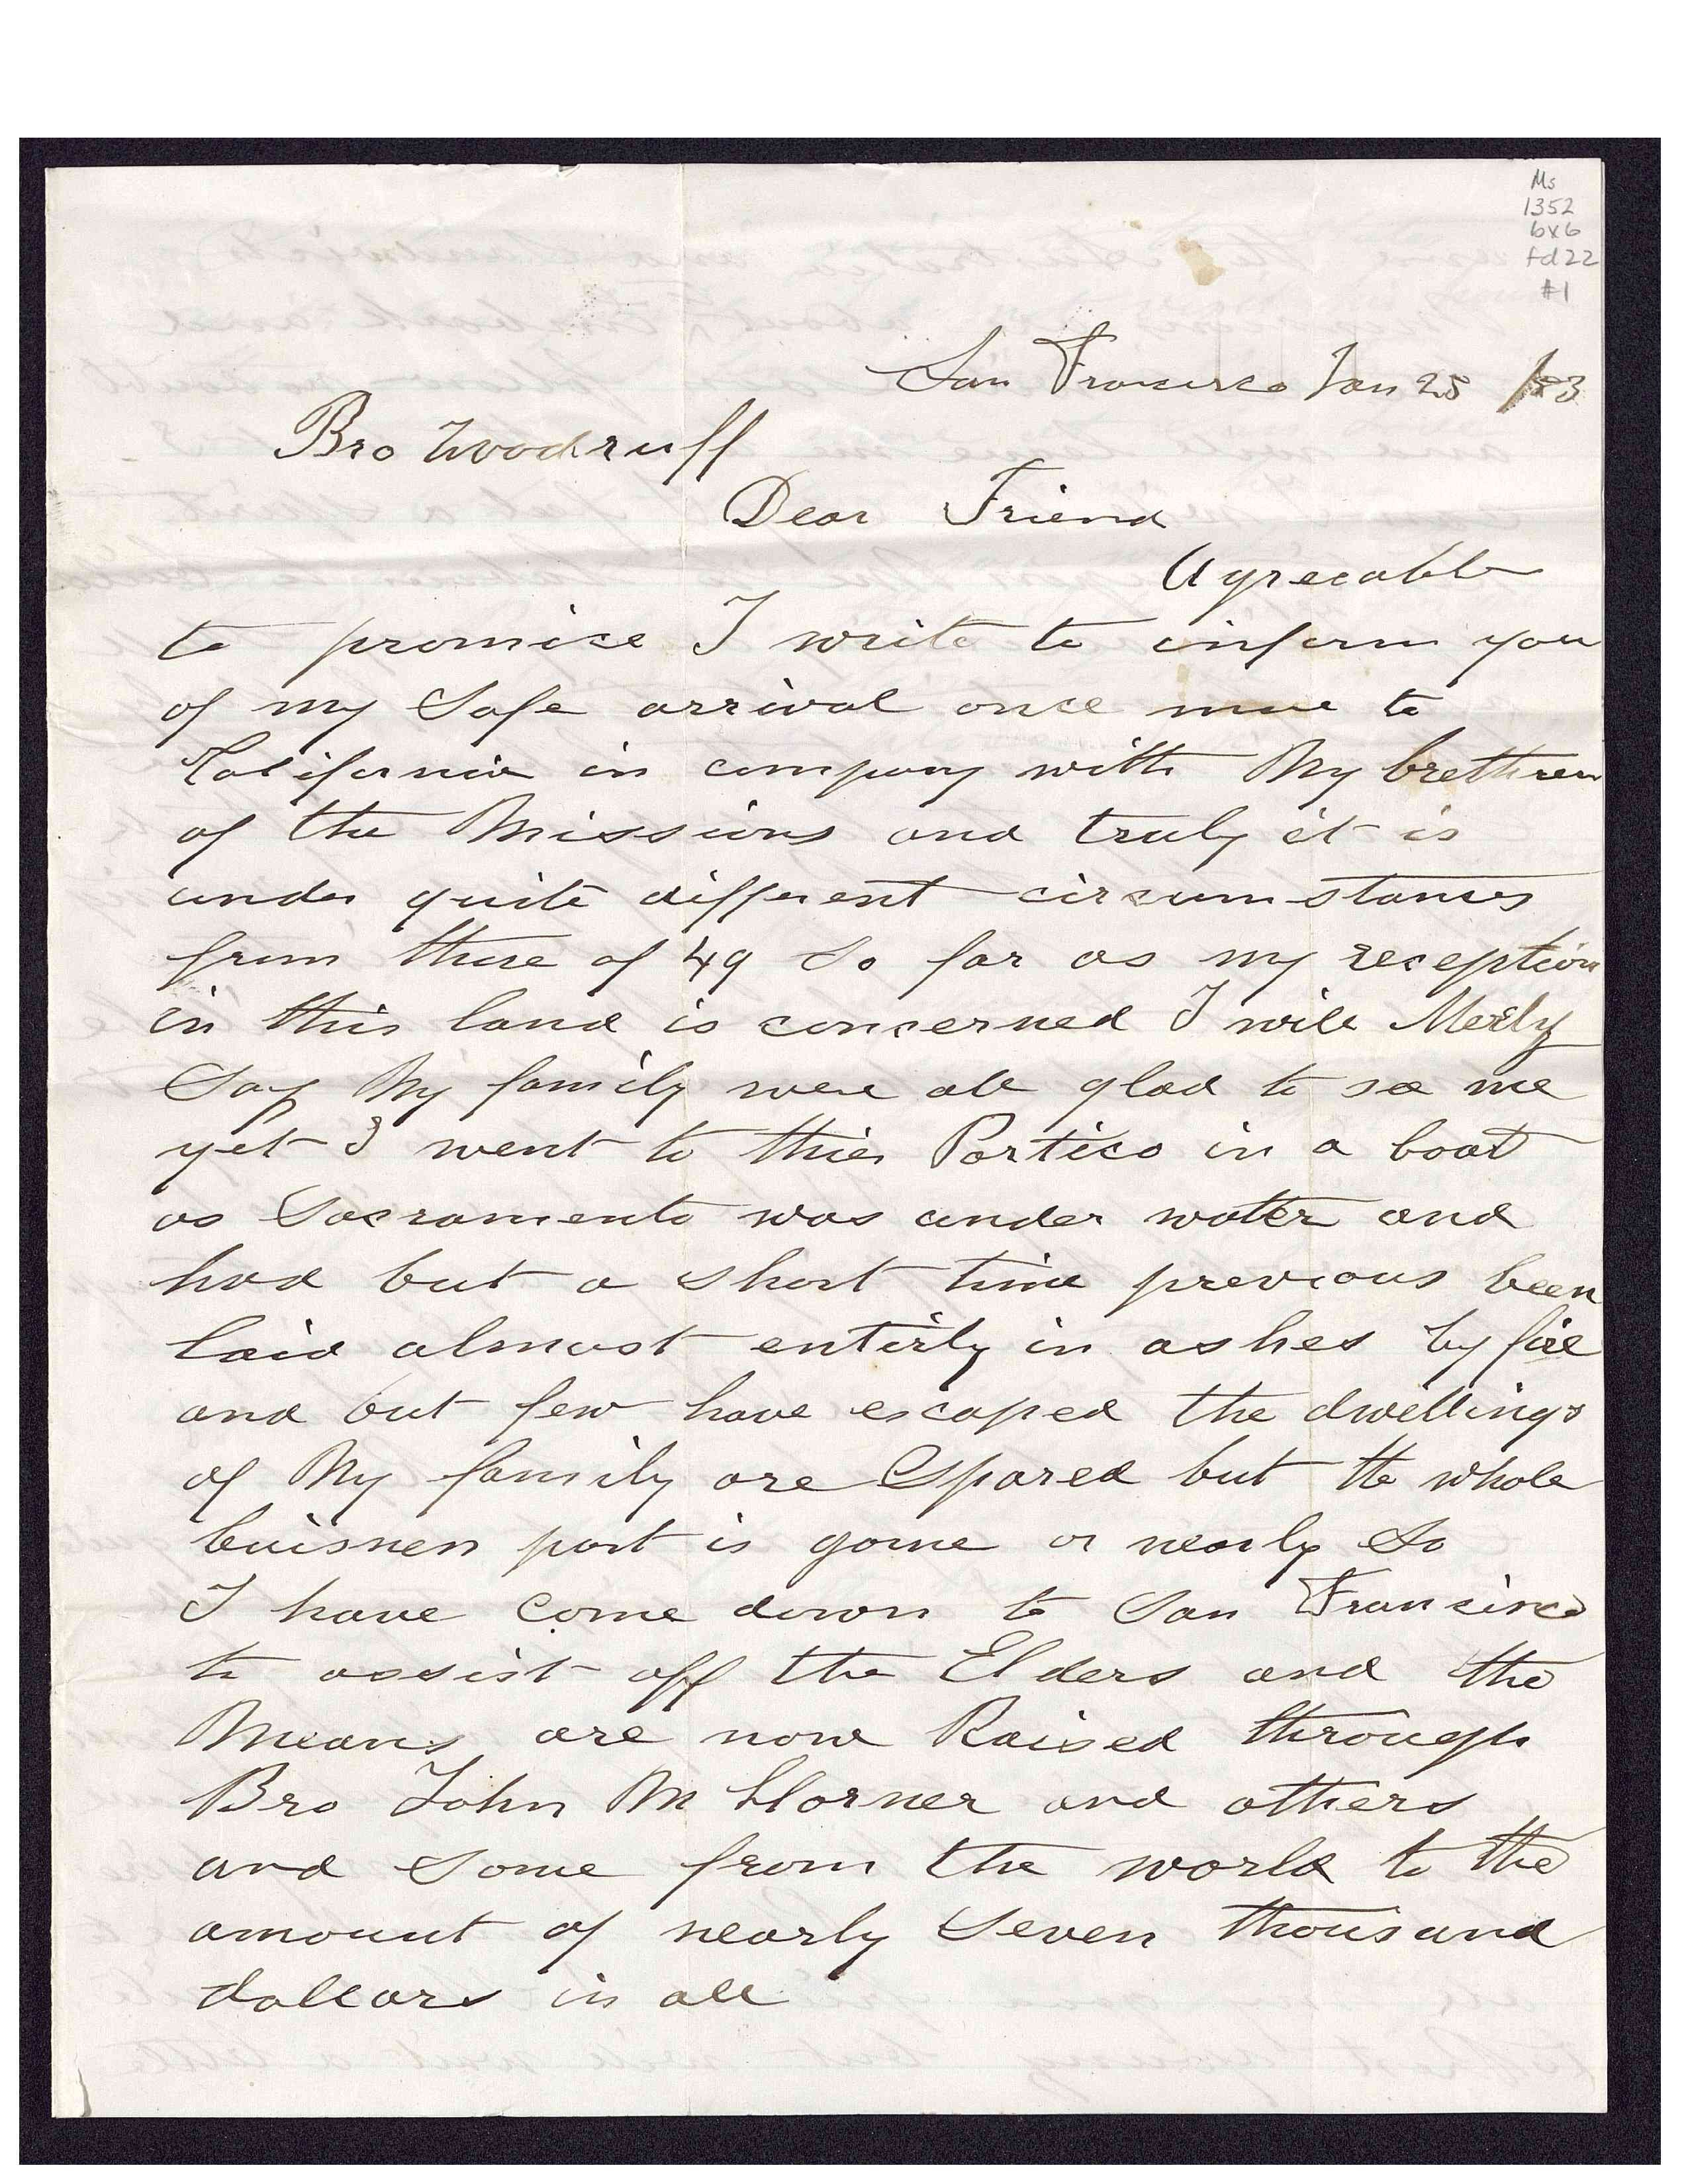 Ms
1352
bx6
fd 22
#1
San Francisco Jan 25 /53
Bro Woodruff
Dear Friend
Agreeable
to promise I write to inform you
of my Safe arrival once more to
California in company with My brethren
of the Missions and truly it is
under quite different circumstances
from those of 49 So far as my reception
in this land is concerned I will Merly
Say My family were all glad to see me
yet I went to thier Portico in a boat
as Sacramento was under water and
had but a short time previous been
laid almost entirly in ashes by fire
and but few have escaped the dwellings
of My family are Spared but the whole
buisness part is gone or nearly So
I have come down to San Francisco
to assist off the Elders and the
Means are now Raised through
Bro John M Horner and others
and Some from the world to the
amount of nearly Seven thousand
dollars in all